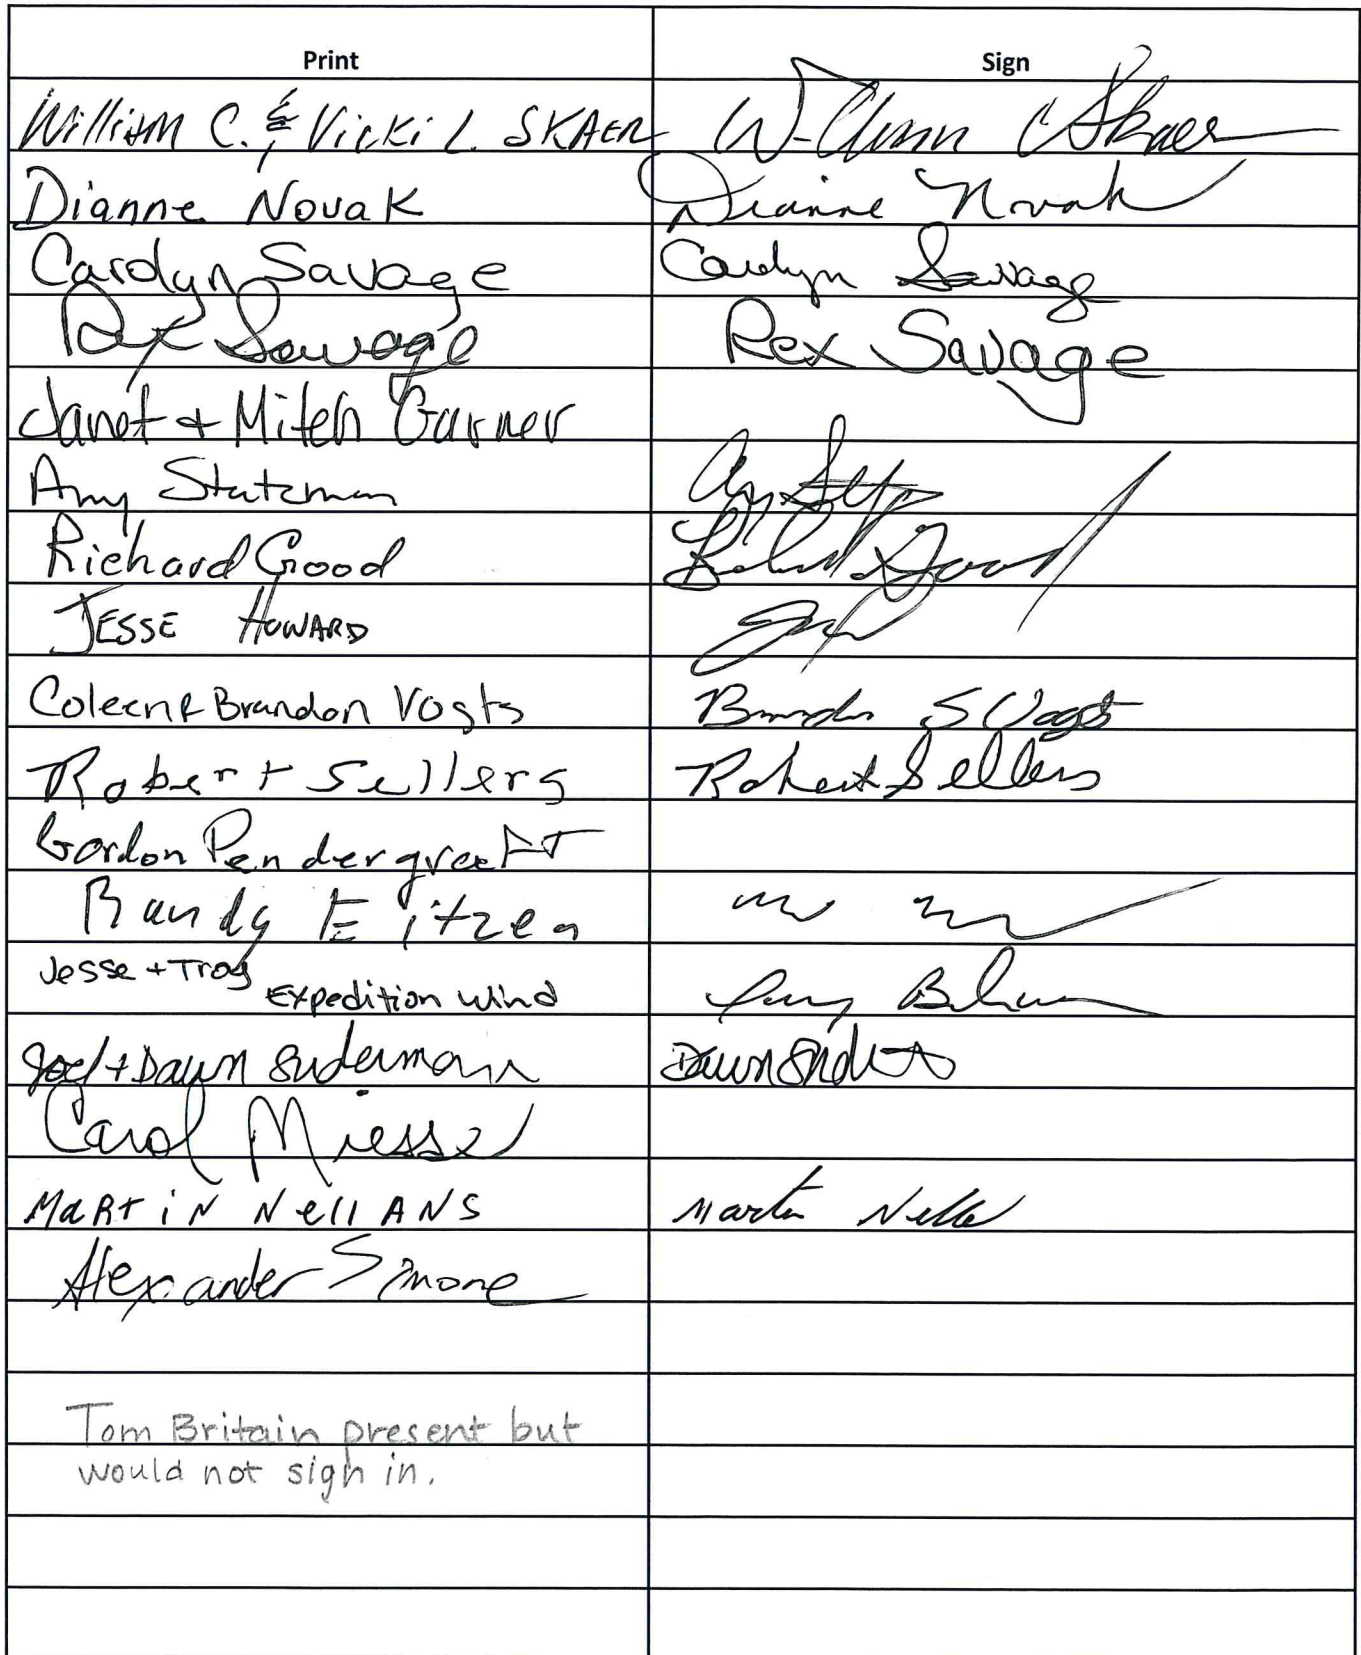 Print Sign
William C. & Vicki L. SKAER William C Skaer
Dianne Novak Dianne Novak
Carolyn Savage Carolyn Savage
Rex Savage Rex Savage
Janet + Mitch Garner
Amy Stutzman
Richard Good Richard Good
JESSE HOWARD
Coleen & Brandon Vogts Brandon S Vogts
Robert Sellers Robert Sellers
Gordon Pendergraft
Randy Eitzen
Jesse + Troy
Expedition Wind
Joel + Dawn Suderman Dawn
Carol Miesse
MaRtiN NellANS Martin
Alexander Simone
Tom Britain present but
would not sign in.